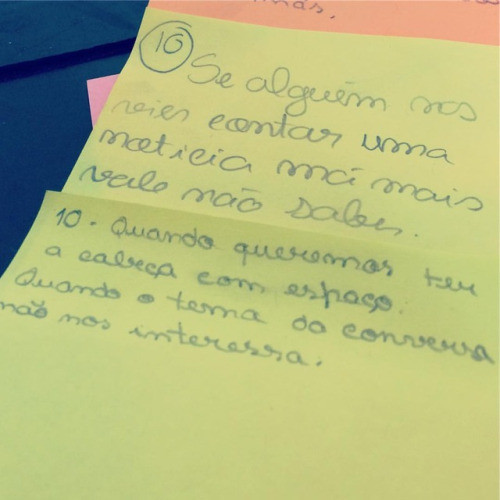 más.
10 Se alguém nos
vier contar uma
notícia má mais
vale não saber.
10. Quando queremos ter
a cabeça com espaço.
Quando o tema da conversa
não nos interessa.